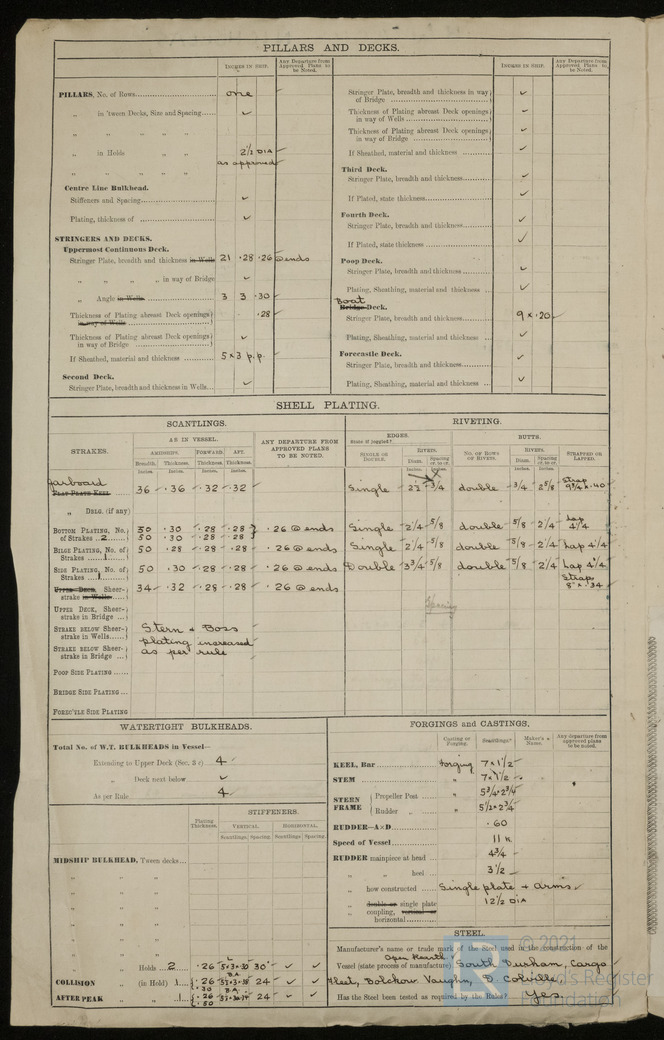 PILLARS AND DECKS.
Inches in Ship.
Any Departure from Approved Plans to be Noted.
PILLARS, No. of Rows one
„ in 'tween Decks, Size and Spacing ✓
„ „ „ „
„ in Holds „ „ 2½ DIA
as approved
„ „ „ „
Centre Line Bulkhead.
Stiffeners and Spacing ✓
Plating, thickness of ✓
STRINGERS AND DECKS.
Uppermost Continuous Deck.
Stringer Plate, breadth and thickness in Wells 21 .28 .26 @ ends
„ „ „ „ in way of Bridge ✓
„ Angle in Wells 3 3 .30
Thickness of Plating abreast Deck openings in way of Wells .28
Thickness of Plating abreast Deck openings in way of Bridge ✓
If Sheathed, material and thickness 5 x 3 p.p.
Second Deck.
Stringer Plate, breadth and thickness in Wells ✓
Inches in Ship.
Any Departure from Approved Plans to be Noted.
Stringer Plate, breadth and thickness in way of Bridge ✓
Thickness of Plating abreast Deck openings in way of Wells ✓
Thickness of Plating abreast Deck openings in way of Bridge ✓
If Sheathed, material and thickness ✓
Third Deck.
Stringer Plate, breadth and thickness ✓
If Plated, state thickness ✓
Fourth Deck.
Stringer Plate, breadth and thickness ✓
If Plated, state thickness ✓
Poop Deck.
Stringer Plate, breadth and thickness ✓
Plating, Sheathing, material and thickness ✓
Boat
Bridge Deck.
Stringer Plate, breadth and thickness 9 x .20
Plating, Sheathing, material and thickness ✓
Forecastle Deck.
Stringer Plate, breadth and thickness ✓
Plating, Sheathing, material and thickness ✓
SHELL PLATING.
SCANTLINGS.
RIVETING.
STRAKES.
AS IN VESSEL.
AMIDSHIPS. FORWARD. AFT.
Breadth. Thickness. Thickness. Thickness.
Inches. Inches. Inches. Inches.
ANY DEPARTURE FROM APPROVED PLANS TO BE NOTED.
EDGES.
State if joggled?
SINGLE OR DOUBLE.
RIVETS.
Diam. Spacing cr. to cr.
Inches. Inches.
BUTTS.
NO. OF ROWS OF RIVETS.
RIVETS.
Diam. Spacing cr. to cr.
Inches. Inches.
STRAPPED OR LAPPED.
Garboard
Flat Plate Keel 36 .36 .32 .32 Single 2½ 3/4 double 3/4 2 5/8 Strap
„ Dblg. (if any)
Bottom Plating, No. of Strakes 2 50 .30 .28 .28 .26 @ ends Single 2¼ 5/8 double 5/8 2¼ Lap 4¼
50 .30 .28 .28
Bilge Plating, No. of Strakes 1 50 .28 .28 .28 .26 @ ends Single 2¼ 5/8 double 5/8 2¼ Lap 4¼
Side Plating, No. of Strakes 1 50 .30 .28 .28 .26 @ ends Double 3¾ 5/8 double 5/8 2¼ Lap 4¼
Upper Deck, Sheerstrake in Wells 34 .32 .28 .28 .26 @ ends Straps 8" x .34
Upper Deck, Sheerstrake in Bridge
Spacing
Strake below Sheerstrake in Wells Stern & Boss
plating increased
Strake below Sheerstrake in Bridge as per rule
Poop Side Plating
Bridge Side Plating
Forec'tle Side Plating
WATERTIGHT BULKHEADS.
Total No. of W.T. BULKHEADS in Vessel—
Extending to Upper Deck (Sec. 3 c) 4
„ Deck next below ✓
As per Rule 4
Plating Thickness.
STIFFENERS.
VERTICAL. HORIZONTAL.
Scantlings. Spacing. Scantlings. Spacing.
MIDSHIP BULKHEAD, Tween decks
„ „ „
„ „ „
„ „ „
„ „ „
„ „ „
„ „ „
„ Holds 2 .26 L 5x3x.30 30" ✓ ✓
COLLISION „ (in Hold) .26 BA 24 ✓ ✓
.30
AFTER PEAK „ 1 .26 BA 24 ✓ ✓
.50
FORGINGS and CASTINGS.
Casting or Forging. Scantlings. Maker's Name. Any departure from approved plans to be noted.
KEEL, Bar Forging 7 x 1½
STEM „ 7 x 1½
STERN FRAME Propeller Post „ 5¾ x 2¾
Rudder „ „ 5½ x 2¾
RUDDER—A×D .60
Speed of Vessel 11 K.
RUDDER mainpiece at head 4¾
„ „ heel 3½
„ how constructed Single plate & Arms
„ double or single plate
„ coupling, vertical or horizontal 12½ DIA
STEEL.
Manufacturer's name or trade mark of the Steel used in the construction of the
Open Hearth
Vessel (state process of manufacture) South Durham, Cargo
Fleet, Bolckow Vaughn, D. Colville
Has the Steel been tested as required by the Rules? Yes
© 2021
Lloyd's Register
Foundation